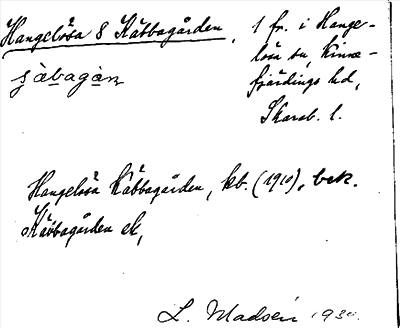 Hangelösa 8 Käbbagården, 1 fr. i Hange-
lösa sn, Kinne-
fjärdings hd,
Skarab. l.
Hangelösa Käbbagården, kb. (1910), bek.
Käbbagården ek,
L. Madsén 1930.